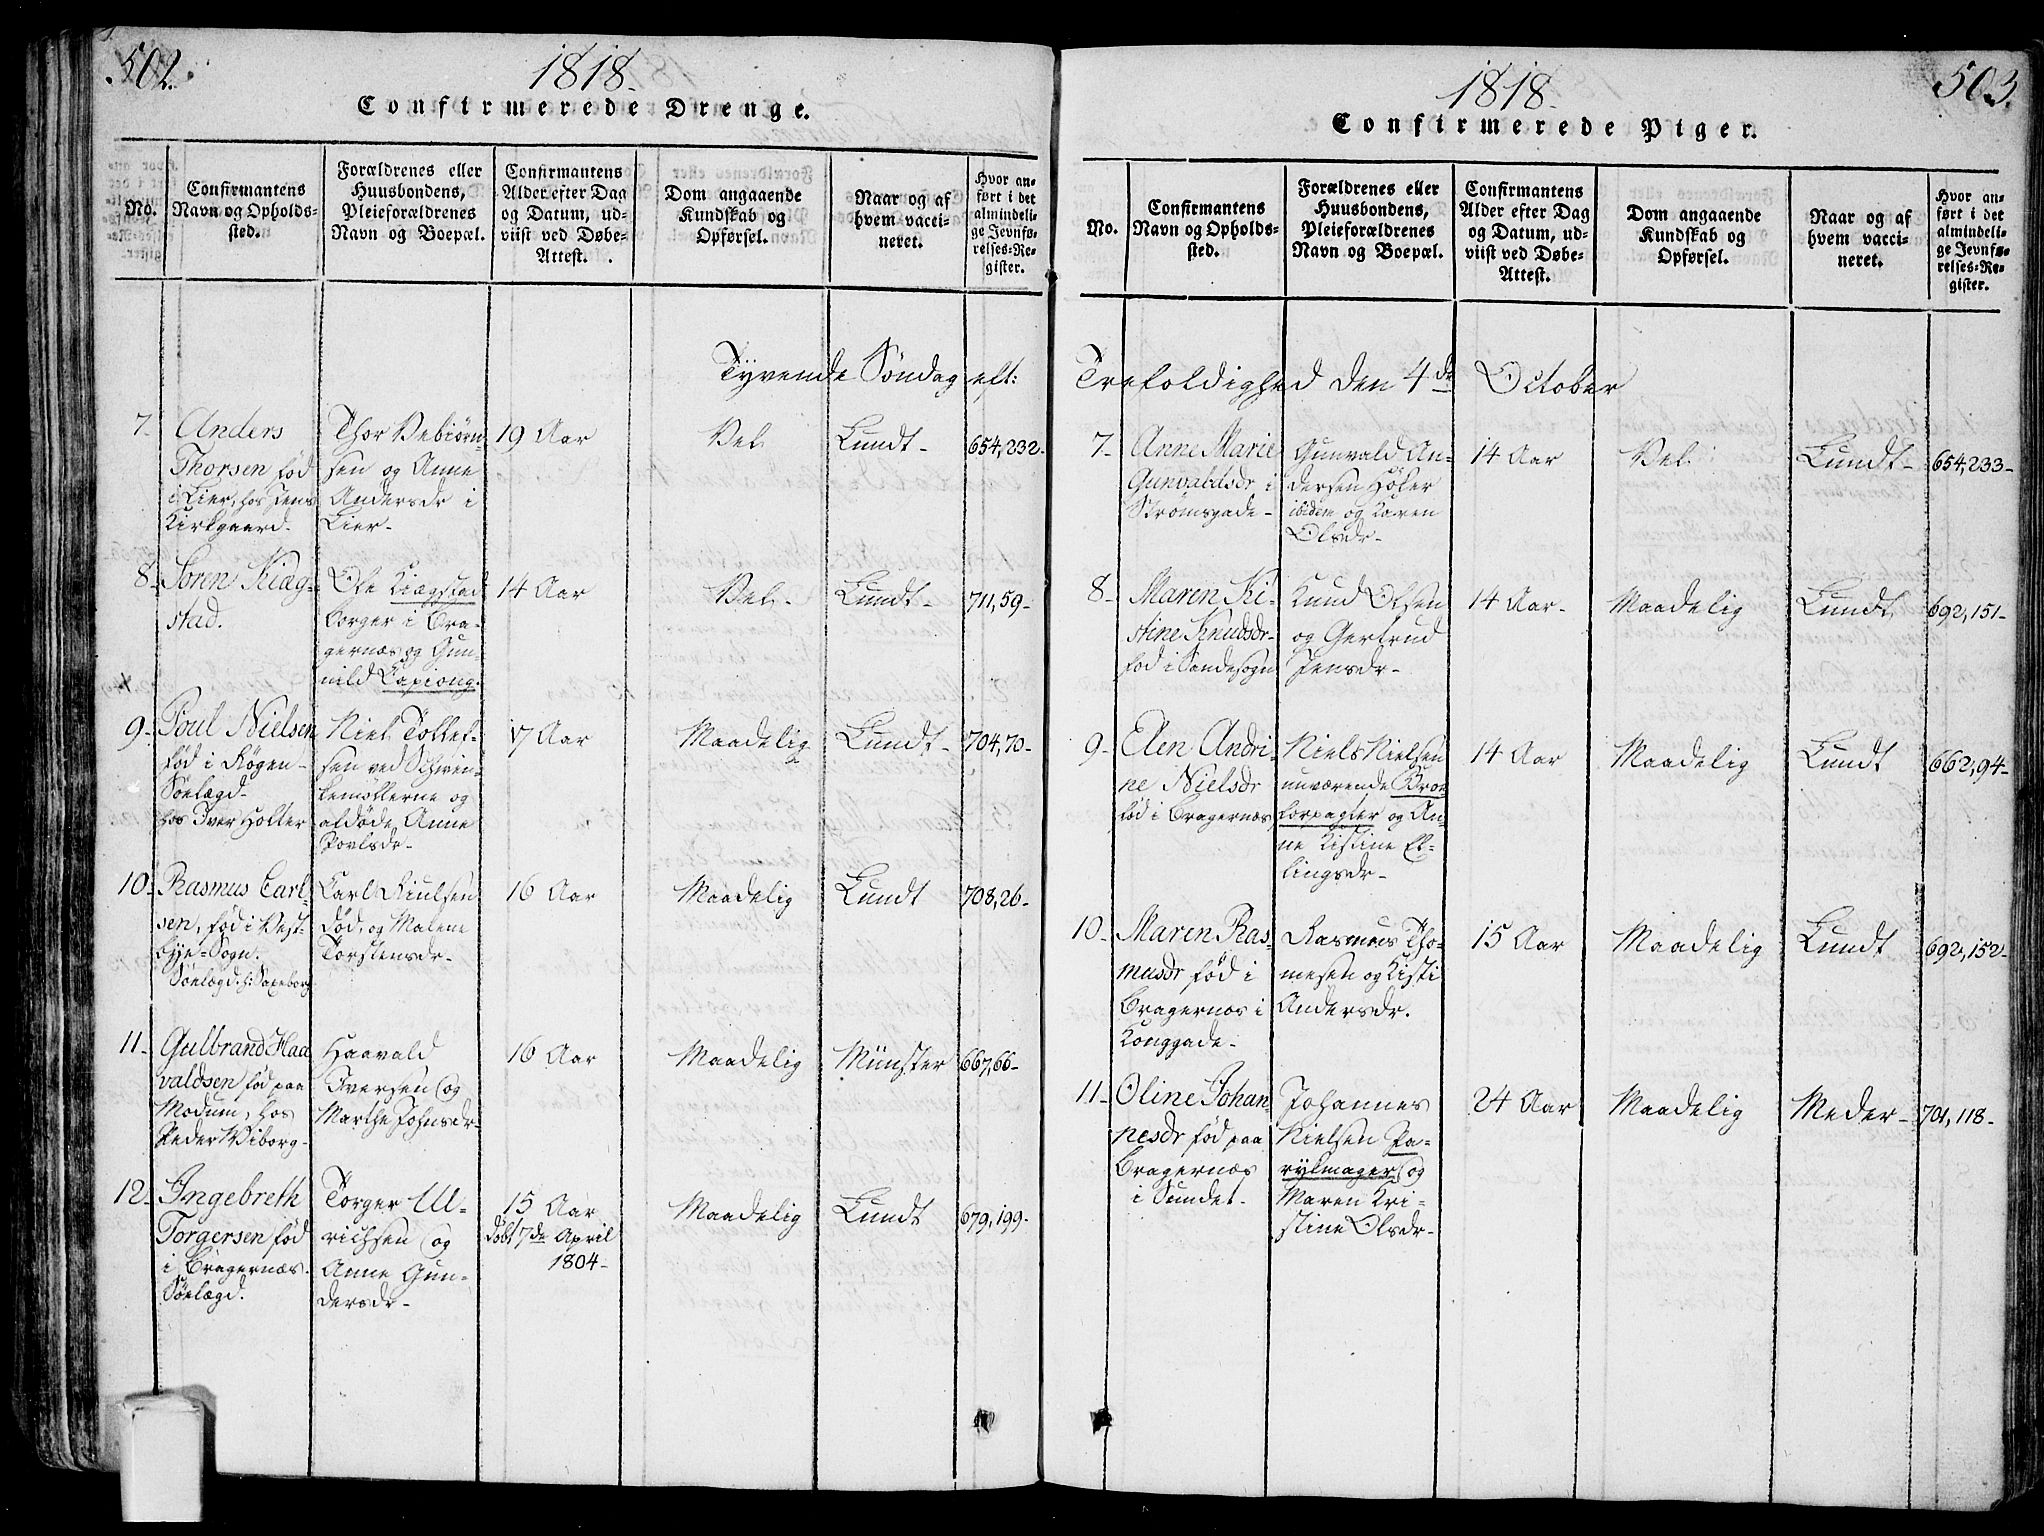 502.
1818.
Confirmerede Drenge.
No.
Confirmantens
Navn og Opholds-
sted.
Forældrenes eller
Huusbondens,
Pleieforældrenes
Navn og Boepæl.
Confirmantens
Alder efter Dag
og Datum, ud-
viist ved Døbe-
Attest.
Dom angaaende
Kundskab og
Opførsel.
Naar og af
hvem vacci-
neret.
Hvor an-
ført i det
almindeli-
ge Jevnfø-
relses-Re-
gister.
Tyvende Søndag eft:
7- Anders
Thorsen fød
i Lier, hos Jens
Kirkgaard.
Thor Vebiørn-
sen og Anne
Andersdr i
Lier-
19 Aar
Vel
Lundt-
654,232-
8- Sören Kiæg-
stad.
Ole Kiægstad
borger i Bra-
gernæs og Gun-
nild Kapiong.
14 Aar
Vel-
Lundt-
711,59-
9- Poul Nielsen
fød i Røgen-
Söelægd-
hos Iver Holter
Niel Tollef-
sen ved Schwen-
kemøllerne og
aldøde Anne
Povlsdr-
17 Aar
Maadelig
Lundt-
704,70-
10- Rasmus Carl-
sen, fød i Vest-
bye-Sogn.
Söelægd. h: Saxeborg
Carl Riulsen
død, og Malene
Torstensdr-
16 Aar
Maadelig
Lundt
708,26-
11- Gulbrand Haa
valdsen fød paa
Modum, hos
Peder Wiborg-
Haavald
Iversen og
Marthe Johnsdr-
16 Aar
Maadelig
Münster
667,66-
12- Ingebreth
Torgersen fød
i Bragernæs.
Söelægd.
Torger Ul-
richsen og
Anne Gun-
dersdr-
15 Aar
døbt 7de April
1804-
Maadelig
Lundt
679,199-
503.
1818.
Confirmerede Piger.
No.
Confirmantens
Navn og Opholds-
sted.
Forældrenes eller
Huusbondens,
Pleieforældrenes
Navn og Boepæl.
Confirmantens
Alder efter Dag
og Datum, ud-
viist ved Døbe-
Attest.
Dom angaaende
Kundskab og
Opførsel.
Naar og af
hvem vacci-
neret.
Hvor an-
ført i det
almindeli-
ge Jevnfø-
relses-Re-
gister.
Trefoldighed den 4de October
7- Anne Marie
Gunvaldsdr i
Strømsgade-
Gunvald An-
dersen Höker
ibidem og Karen
Olsdr-
14 Aar
Vel
Lundt-
654,233-
8- Maren Ki-
stine Knudsdr-
fød i Sandesogn
Knud Olsen
og Gertrud
Jensdr-
14 Aar-
Maadelig
Lundt
692,151-
9- Elen Andri
ne Nielsdr
fød i Bragernæs
Niels Nielsen
nuværende Broe
forpagter og An-
ne Kistine El-
lingsdr-
14 Aar
Maadelig
Lundt
662,94-
10- Maren Ras-
musdr fød i
Bragernæs i
Konggade-
Rasmus Tho-
mesen og Kisti
Andersdr.
15 Aar
Maadelig
Lundt
692,152-
11- Oline Johan-
nesdr fød paa
Bragernæs
i Sundet-
Johannes
Nielsen Pa-
rykmager og
Maren Kri-
stine Olsdr-
24 Aar
Maadelig
Meder-
701,118-